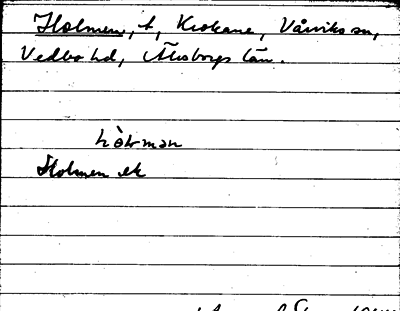 Holmen, t, Krokane, Vårviks sn,
Vedbo hd, Älvsborgs län.
hòlman
Holmen ek